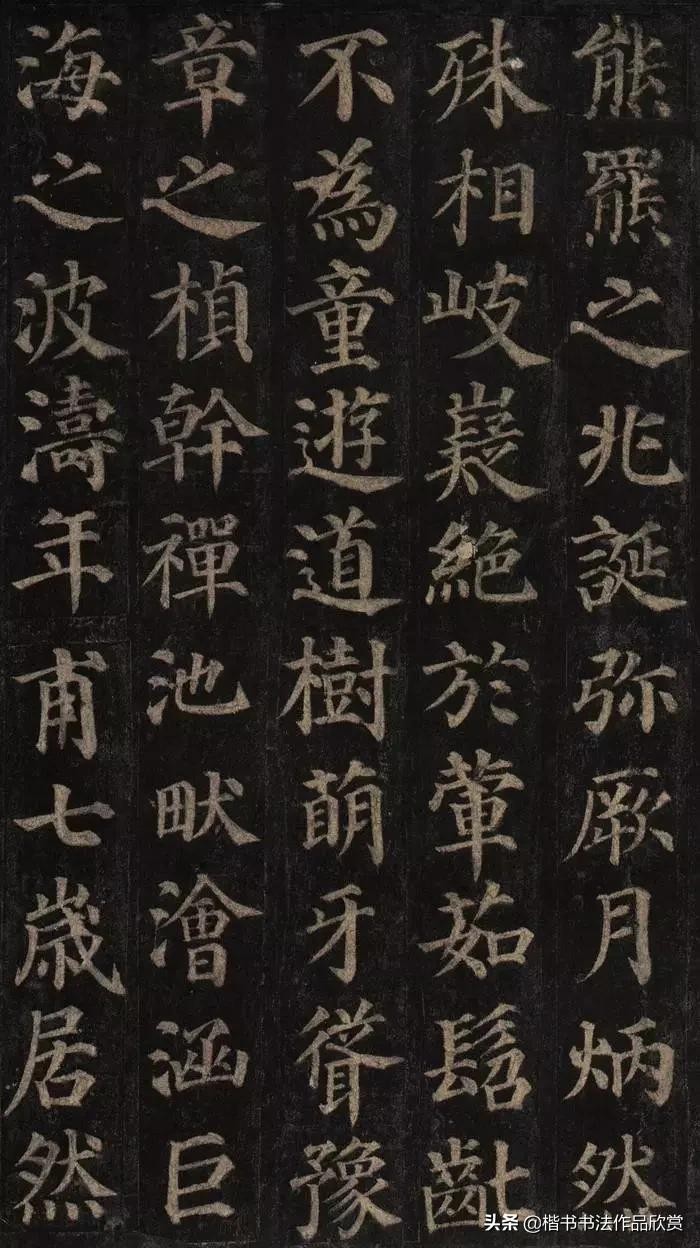 熊羆之兆誕弥厥月炳然
殊相岐嶷絕於葷茹髫齓
不為童遊道樹萌牙聳豫
章之楨幹禪池畎澮涵巨
海之波濤年甫七歲居然
头条 @楷书书法作品欣赏